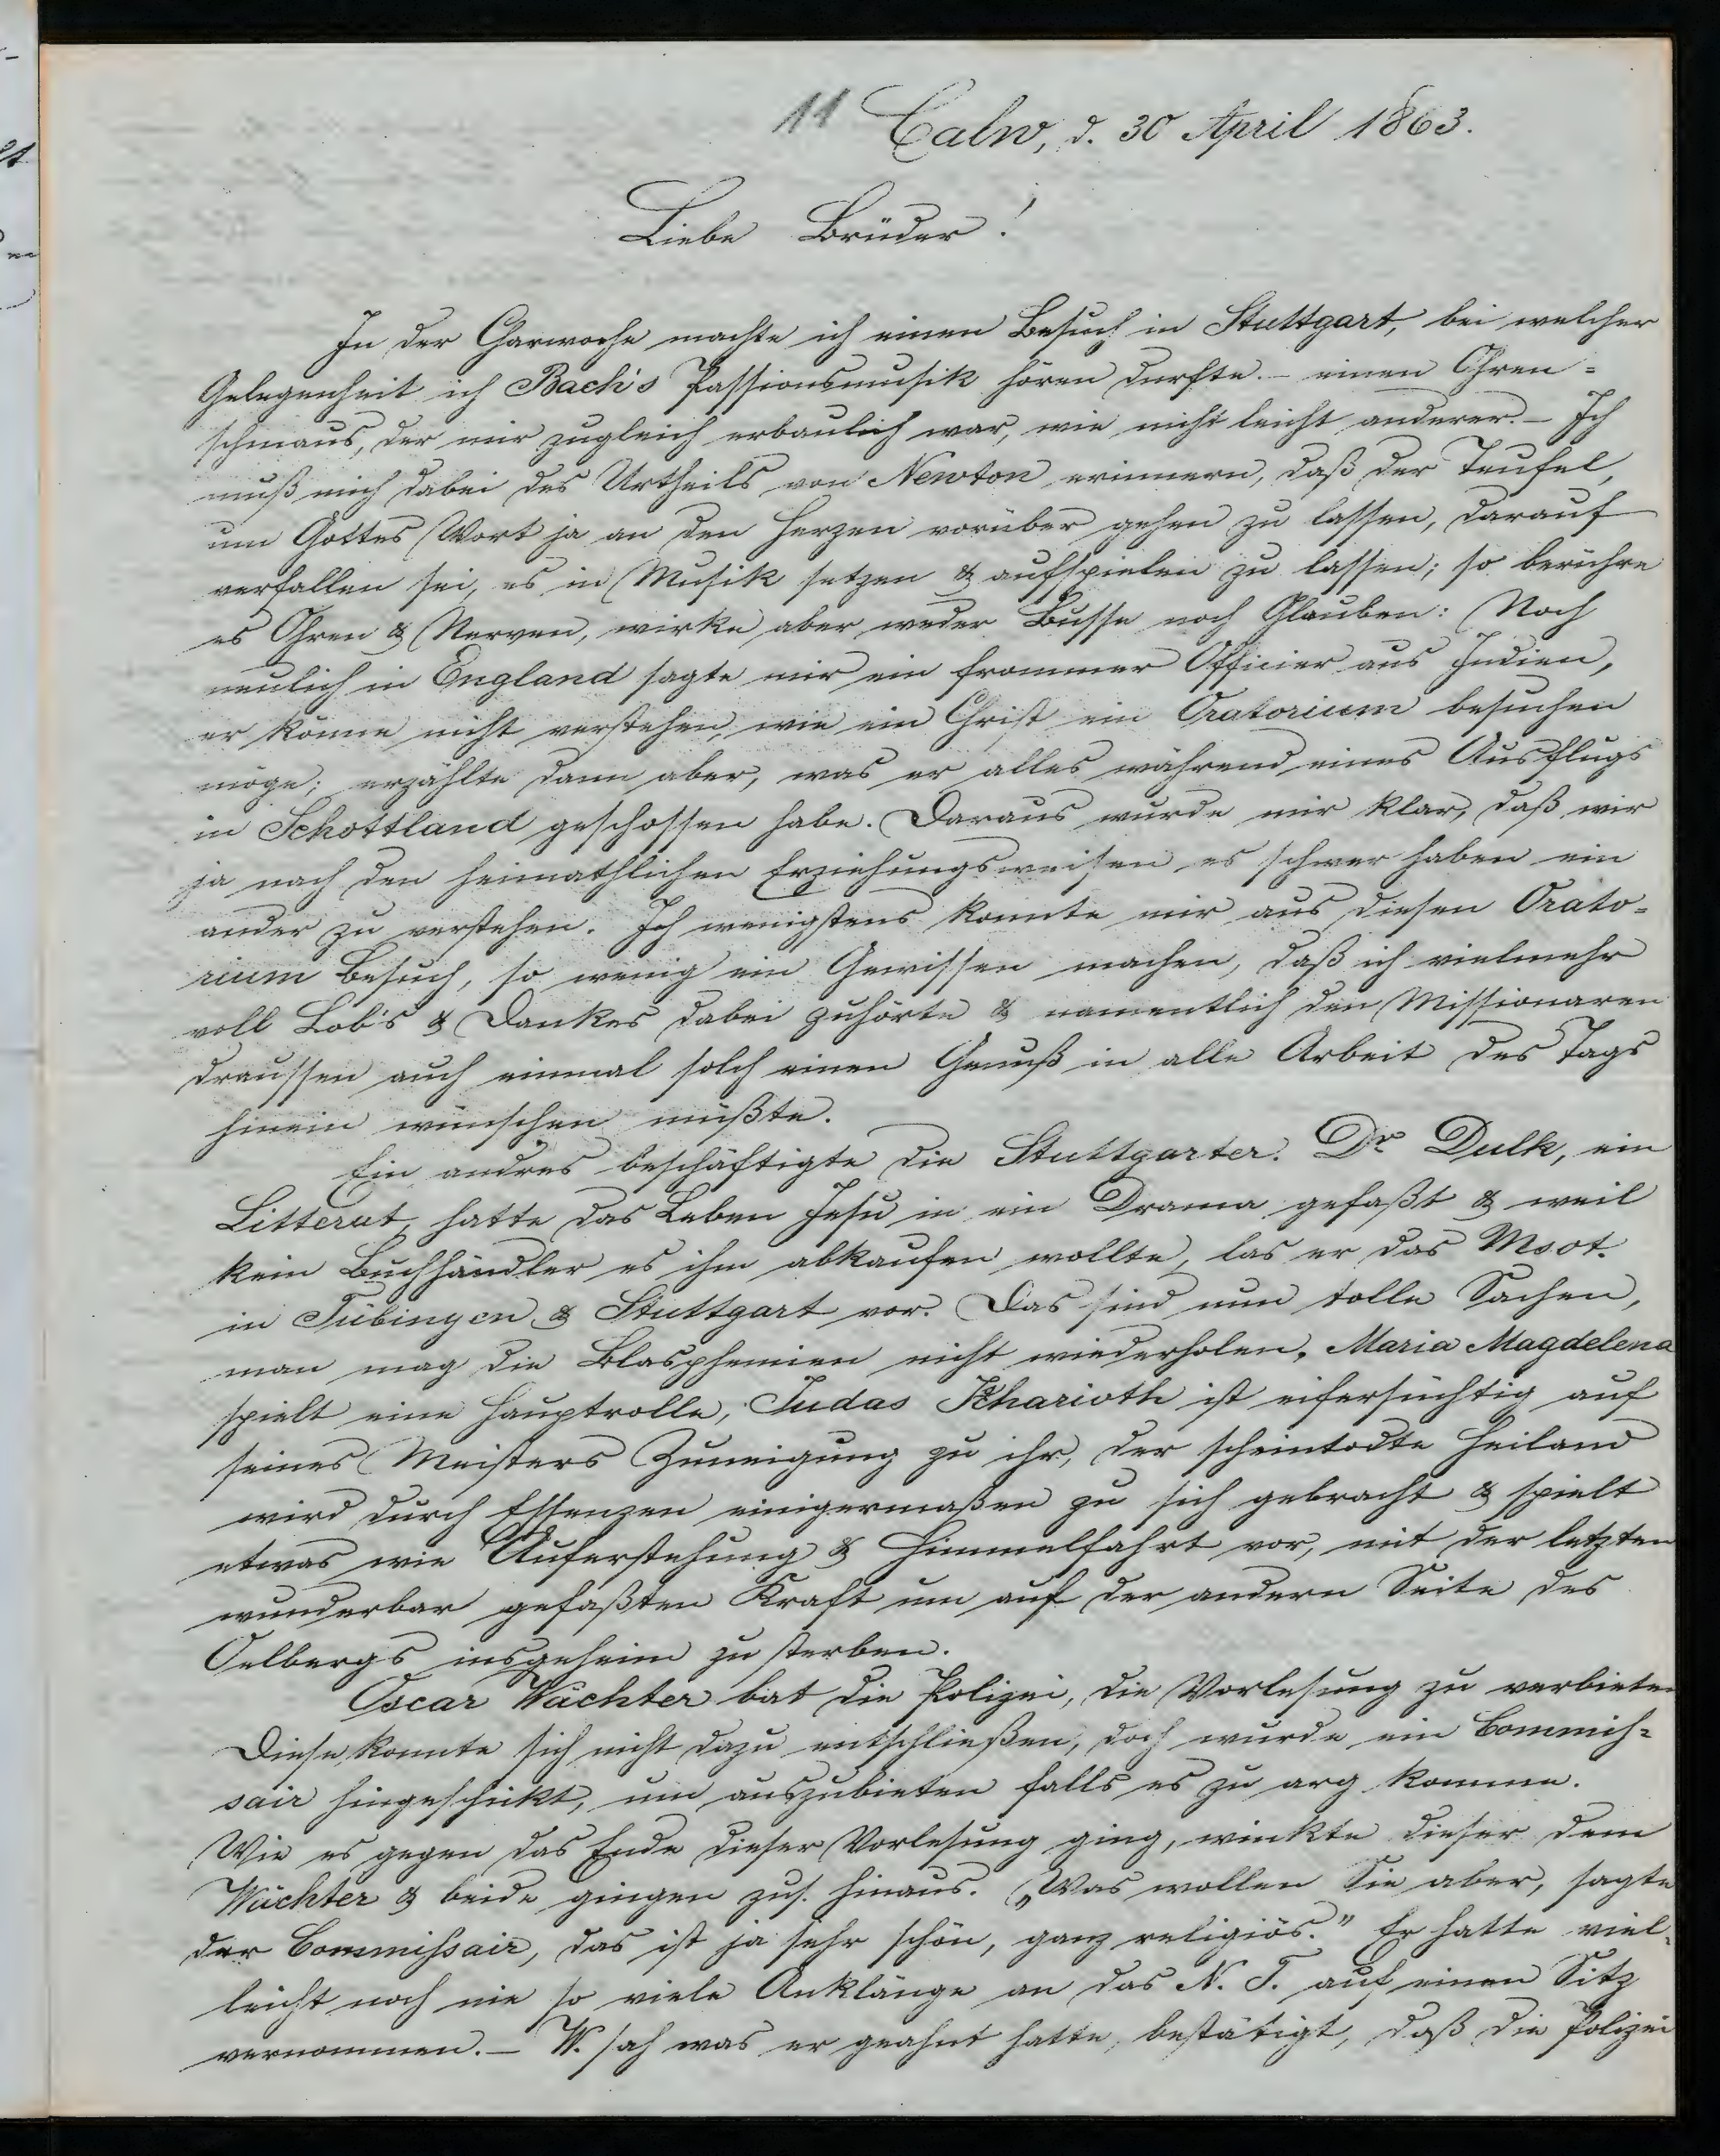 11 Calw, d. 30 April 1863.
Liebe Brüder!
In der Charwoche machte ich einen Besuch in Stuttgart, bei welcher
Gelegenheit ich Bach's Passionsmusik hören durfte. – einen Ohren-
schmaus, der mir zugleich erbaulich war, wie nicht leicht anderer. – Ich
muß mich dabei des Urtheils von Newton erinnern, daß der Teufel,
um Gottes Wort ja an den Herzen vorüber gehen zu lassen, darauf
verfallen sei, es in Musik setzen & aufspielen zu lassen; so berühre
es Ohren & Nerven, wirke aber weder Busse noch Glauben: Noch
neulich in England sagte mir ein frommer Officier aus Indien,
er könne nicht verstehen, wie ein Christ ein Oratorium besuchen
möge; erzählte dann aber, was er alles während eines Ausflugs
in Schottland geschossen habe. Daraus wurde mir klar, daß wir
ja nach den heimathlichen Erziehungsweisen es schwer haben ein
ander zu verstehen. Ich wenigstens konnte mir aus diesen Orato-
rium Besuch, so wenig ein Gewissen machen, daß ich vielmehr
voll Lob's & Dankes dabei zuhörte & namentlich den Missionaren
draussen auch einmal solch einen Genuß in alle Arbeit des Tags
hinein wünschen mußte.
Ein andres beschäftigte die Stuttgarter. Dr Dulk, ein
Litterat, hatte das Leben Jesu in ein Drama gefaßt & weil
kein Buchhändler es ihm abkaufen wollte, las er das Msct.
in Tübingen & Stuttgart vor. Das sind nun tolle Sachen,
man mag die Blasphemien nicht wiederholen. Maria Magdelena
spielt eine Hauptrolle, Judas Kharioth ist eifersüchtig auf
seines Meisters Zuneigung zu ihr, der scheintodte Heiland
wird durch Essenzen einigermaßen zu sich gebracht & spielt
etwas wie Auferstehung & Himmelfahrt vor, mit der letzten
wunderbar gefaßten Kraft um auf der andern Seite des
Oelbergs insgeheim zu sterben.
Oscar Wächter bat die Polizei, die Vorlesung zu verbieten
Diese konnte sich nicht dazu entschließen, doch wurde ein Commis-
sair hingeschickt, um auszubieten falls es zu arg komme.
Wie es gegen das Ende dieser Vorlesung ging, winkte dieser dem
Wächter & beide gingen zus. hinaus. „Was wollen Sie aber, sagte
der Commissair, das ist ja sehr schön, ganz religiös." Er hatte viel-
leicht noch nie so viele Anklänge an das N. T. auf einen Sitz
vernommen. – W. sah was er geahnt hatte, bestätigt, daß die Polizei